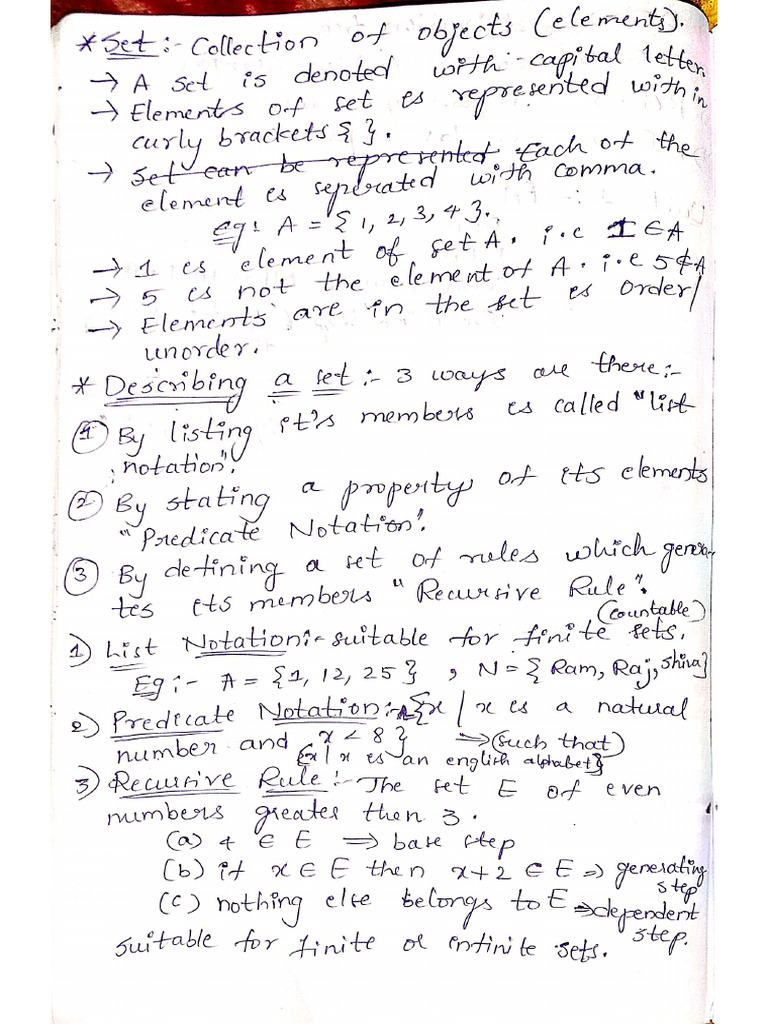 * Set :- Collection of objects (elements).
→ A set is denoted with capital letter.
→ Elements of set is represented within
curly brackets { }.
→ Set can be represented Each of the
element is seperated with comma.
Eg: A = {1, 2, 3, 4}.
→ 1 is element of set A. i.e 1 ∈ A
→ 5 is not the element of A. i.e 5 ∉ A
→ Elements are in the set is order/
unorder.
* Describing a set :- 3 ways are there:-
① By listing it's members is called "list
notation".
② By stating a property of its elements
"Predicate Notation".
③ By defining a set of rules which genera-
tes its members "Recursive Rule".
(countable)
1) List Notation:- suitable for finite sets.
Eg :- A = {1, 12, 25} , N = {Ram, Raj, Shiva}
2) Predicate Notation:- {x / x is a natural
number and x < 8} ⇒ (such that)
{x / x is an english alphabet}
3) Recursive Rule:- The set E of even
numbers greates then 3.
(a) 4 ∈ E ⇒ base step
(b) if x ∈ E then x+2 ∈ E ⇒ generating
step
(c) nothing else belongs to E ⇒ dependent
step.
suitable for finite or infinite sets.